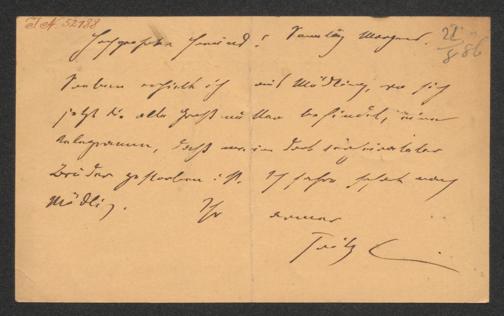 I. N. 52988
Hochgeehrter Freund! Samstag Morgens.
21/8 86
Soeben erhielt ich aus Mödling, wo sich
jetzt die alte Großmutter befindet, ein
Telegramm, daß mein dort
Bruder gestorben ist. Ich fahre sofort nach
Mödling. Ihr armer
Fritz